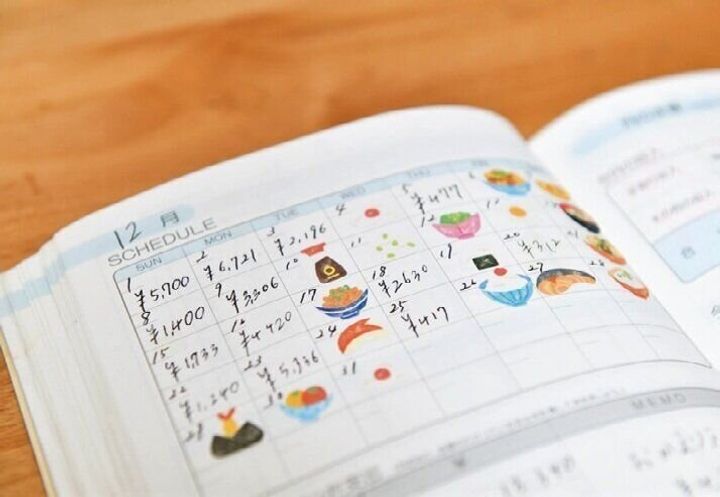 12月
SCHEDULE
SUN MON TUE WED THU FRI
1 2 3 4 5 6
¥5,700 ¥6,721 ¥2,196 ¥477
8 9 10 11 12
¥1,400 ¥3306
15 16 17 18 19 20
¥1,733 ¥4420 ¥2630 ¥312
22 23 24 25 26 27 28
¥1,240 ¥5,336 ¥417
29 30 31
MEMO